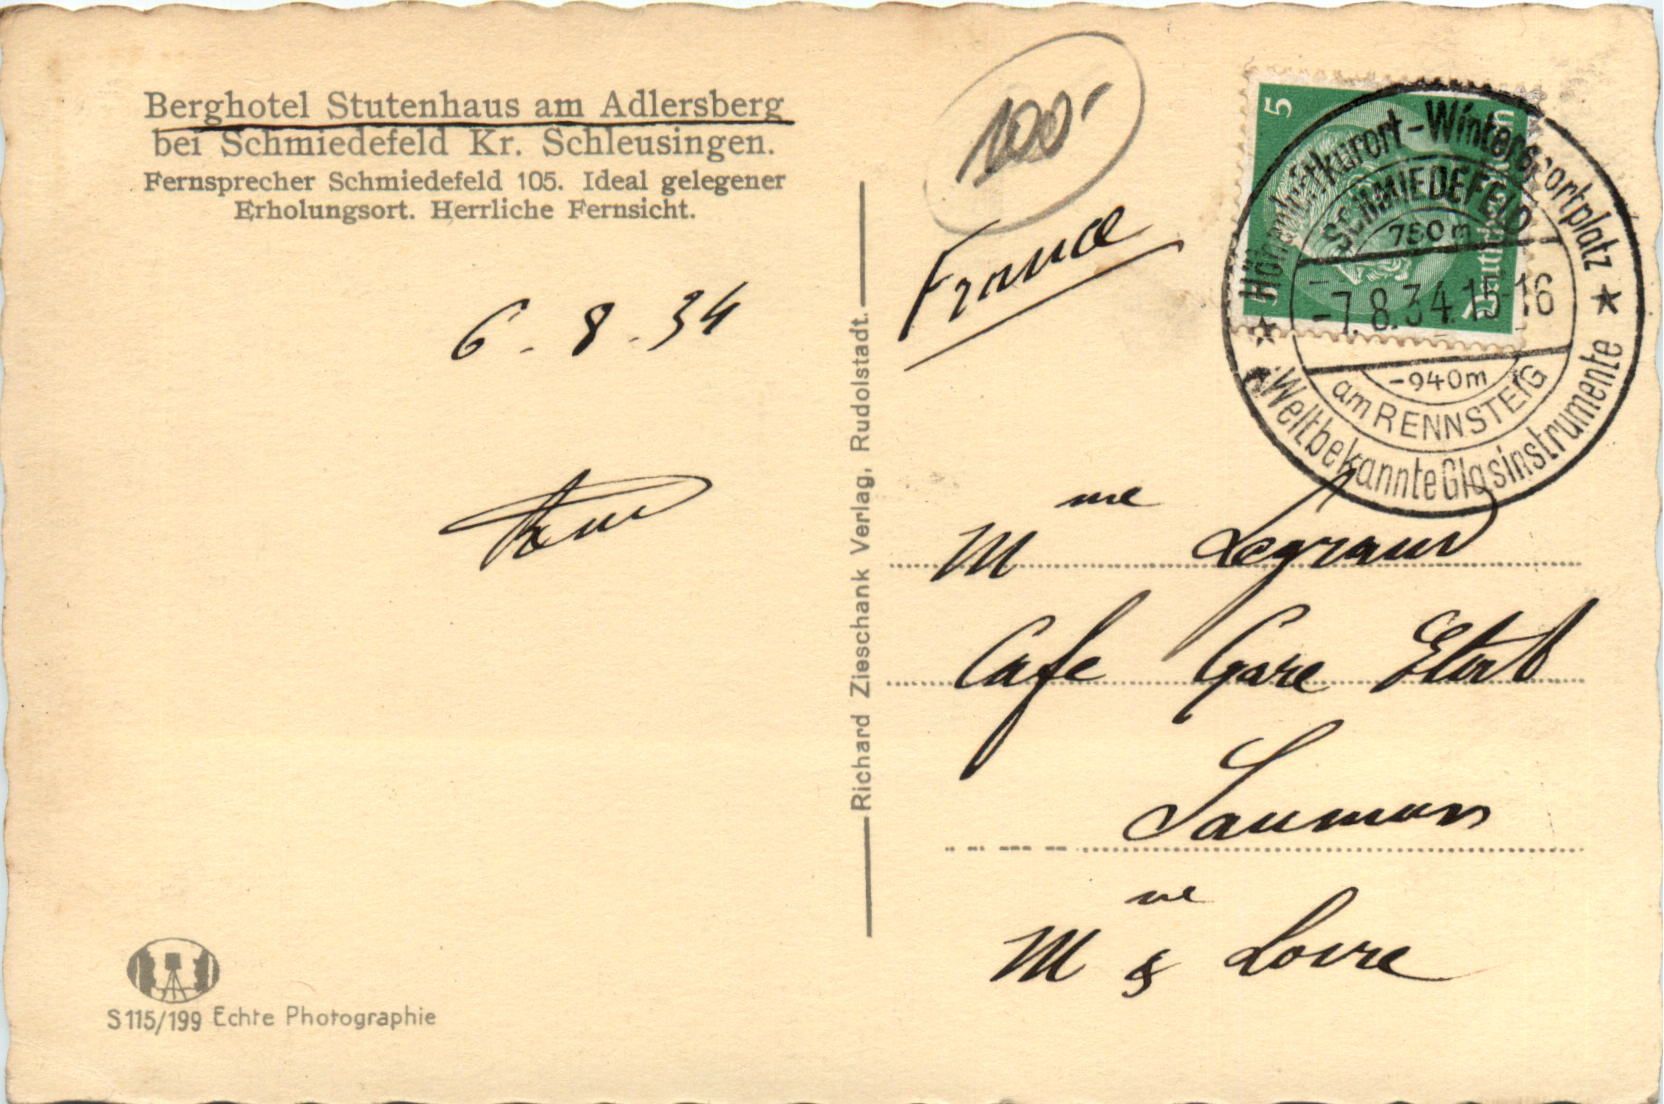 Berghotel Stutenhaus am Adlersberg
bei Schmiedefeld Kr. Schleusingen.
Fernsprecher Schmiedefeld 105. Ideal gelegener
Erholungsort. Herrliche Fernsicht.
6 - 8 - 34
S 115/199 Echte Photographie
Richard Zieschank Verlag, Rudolstadt.
100.-
France
5
Höhenluftkurort - Wintersportplatz
SCHMIEDEFELD
750m
-7.8.34.15-16
-940m
am RENNSTEIG
Weltbekannte Glasinstrumente
Mme Legrand
Cafe Gare Etat
Saumur
M ne & Loire